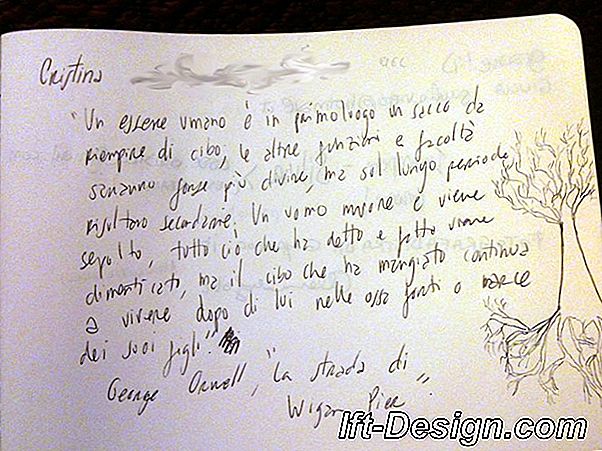 Cristina
"Un essere umano è in primo luogo un sacco da
riempire di cibo; le altre funzioni e facoltà
saranno forse più divine, ma sul lungo periodo
risultano secondarie. Un uomo muore e viene
sepolto, tutto ciò che ha detto e fatto viene
dimenticato, ma il cibo che ha mangiato continua
a vivere dopo di lui nelle ossa forti o marce
dei suoi figli".
George Orwell, "La strada di
Wigan Pier".
lft-Design.com